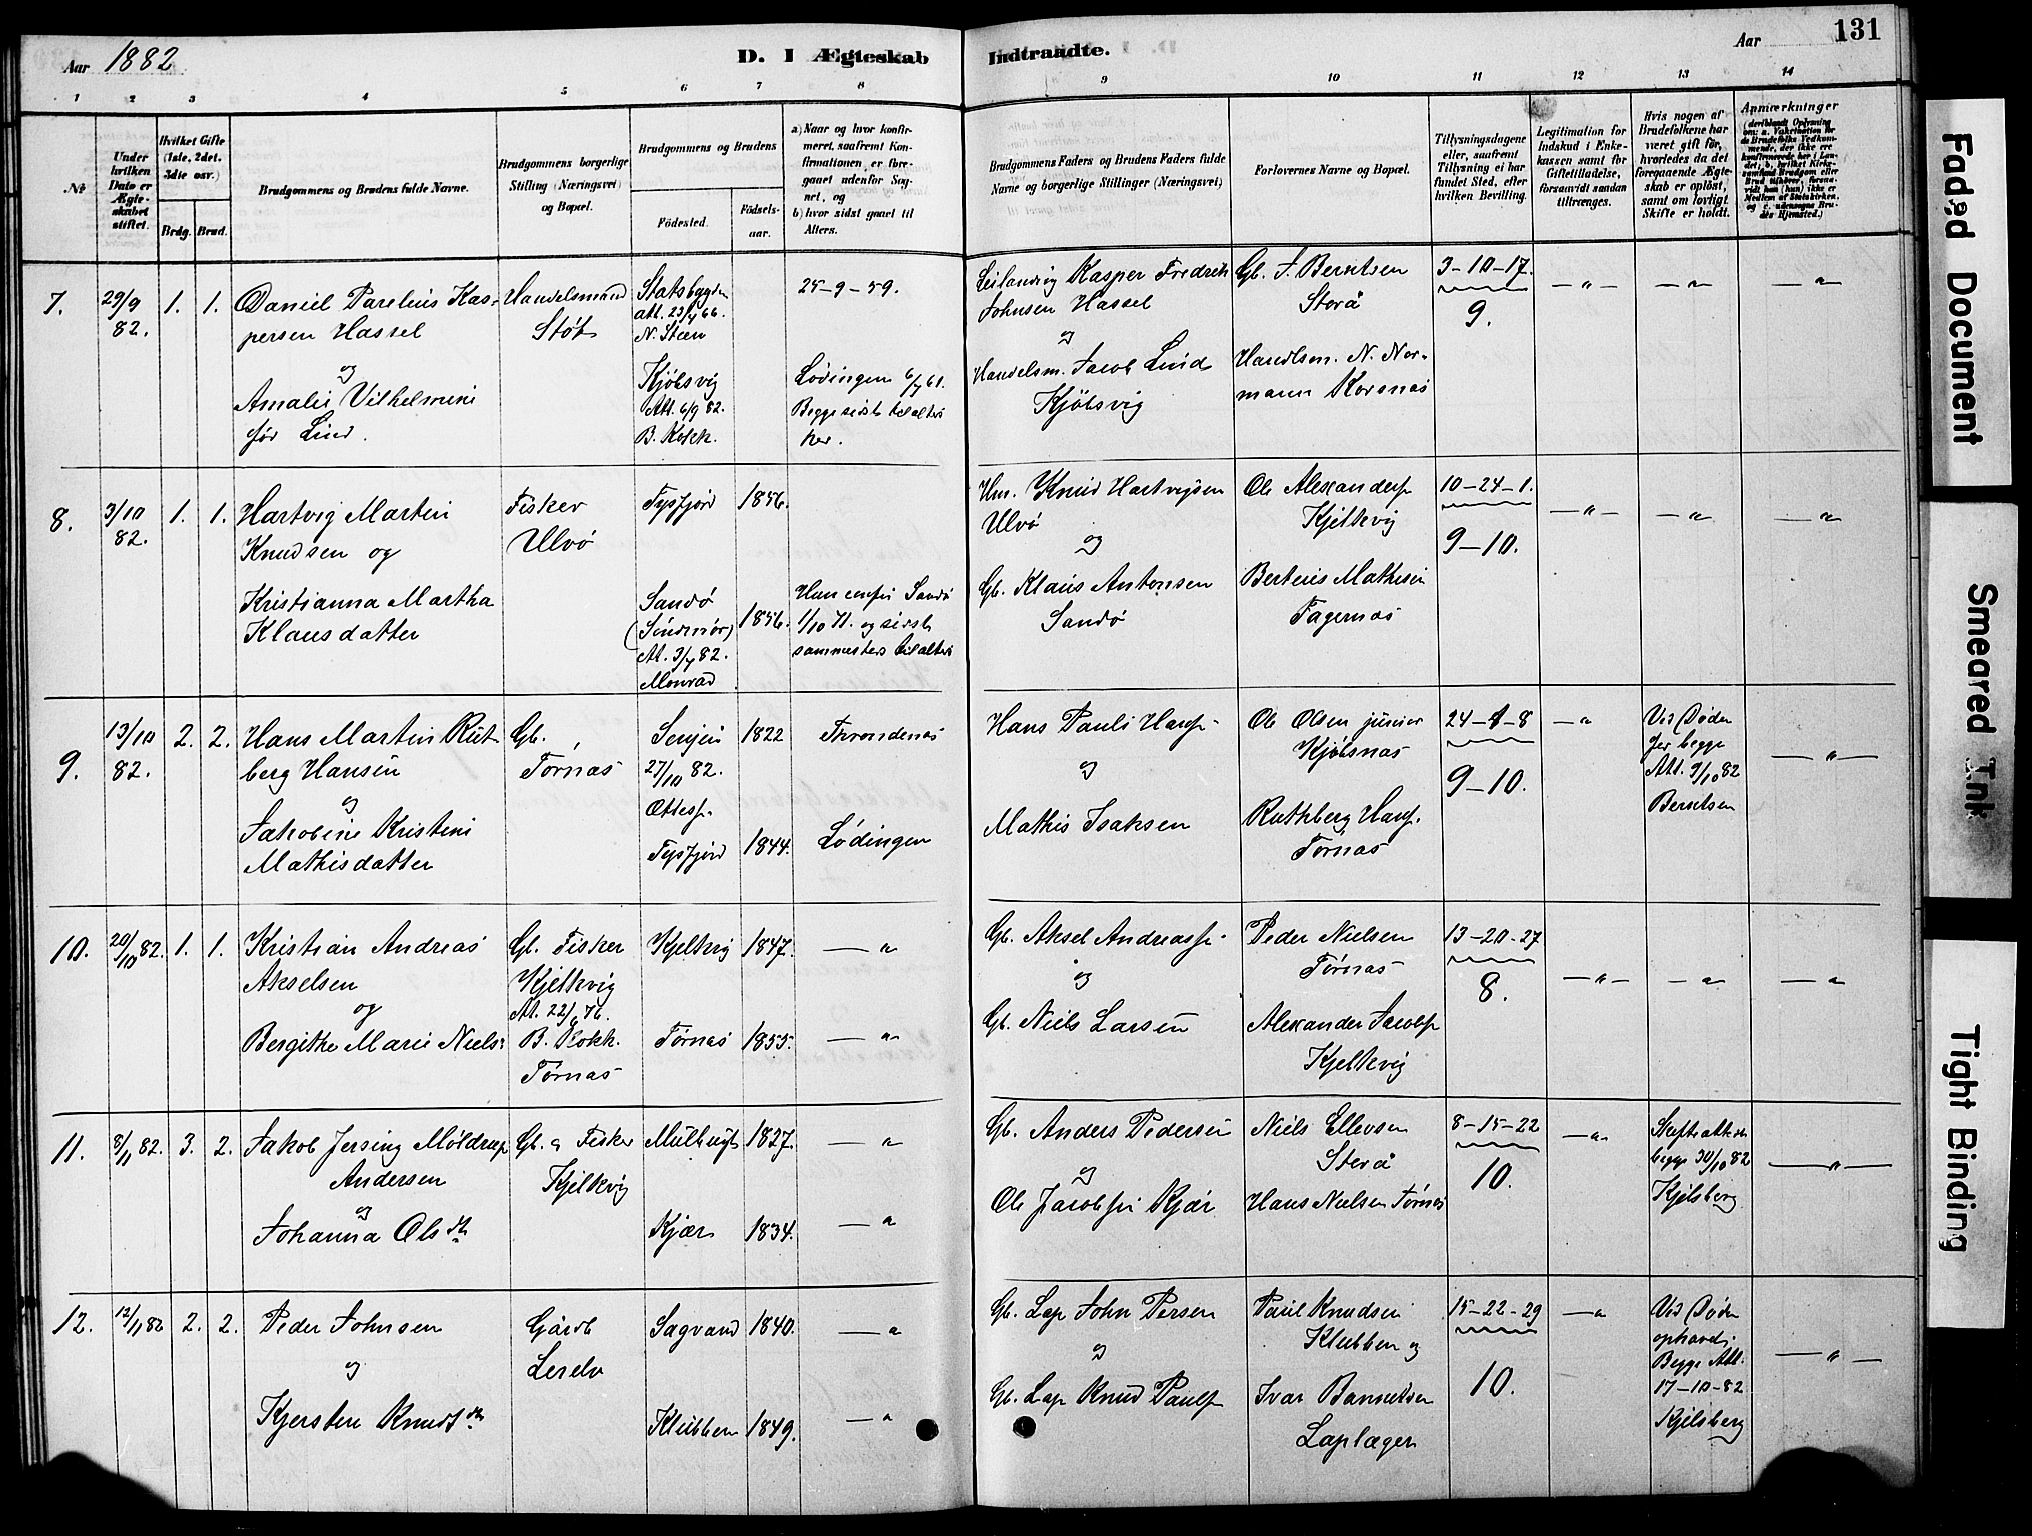 Aar 1882
D. I Ægteskab Indtraadte.
Aar 131
1 2 3 4 5 6 7 8 9 10 11 12 13 14
№
Under hvilken Dato er Ægteskabet stiftet.
Hvilket Gifte (1ste, 2det. 3die osv.)
Brdg. Brud.
Brudgommens og Brudens fulde Navne.
Brudgommens borgerlige Stilling (Næringsvei) og Bopæl.
Brudgommens og Brudens
Fødested.
Fødselsaar.
a) Naar og hvor konfirmeret, saafremt Konfirmationen er foregaaet udenfor Sognet, og
b) hvor sidst gaaet til Alters.
Brudgommens Faders og Brudens Faders fulde Navne og borgerlige Stillinger (Næringsvei)
Forlovernes Navne og Bopæl.
Tillysningsdagene eller, saafremt Tillysning ei har fundet Sted, efter hvilken Bevilling.
Legitimation for Indskud i Enkekassen samt for Giftetilladelse, forsaavidt saadan tiltrænges.
Hvis nogen af Brudefolkene har været gift før, hvorledes da det foregaaende Ægteskab er opløst, samt om lovligt Skifte er holdt.
Anmærkninger
7. 29/9 82. 1. 1.
Daniel Parelius Kaspersen Hassel
og
Amalie Vilhelmine
Lind.
Handelsmand
Støt
Statsbygden
att. 23/4 66.
N. Steen
Kjøbsvig
Att. 6/9 82.
B. Kokk.
25-9-59.
Lødingen 6/7 61.
Begge sidst til alters
her.
Kasper Fredrik
Johnsen Hassel
og
Handelsm. Jacob Lind
Kjøbsvig
Gb. J. Berntsen
Storå
Handlsm. N. Normann Korsnæs
3-10-17.
9.
8. 3/10 82. 1. 1.
Hartvig Martin
Knudsen og
Kristianna Martha
Klausdatter
Fisker
Ulvø
Tysfjord 1856.
Sandø
(Søndmør)
At. 3/7 82.
Monrad
1856.
Hun confir Sandø
1/10 71. og sidst
sammesteds til alters
Hm. Knud Hartvigsen
Ulvø
og
Gb. Klaus Antonsen
Sandø
Ole Alexanders.
Kjelkvig
Berteus Mathisen
Fagernæs
10-24-1.
9-10.
9. 13/10 82. 2. 2.
Hans Martin Rutberg Hansen
og
Jakobine Kristine
Mathisdatter
Gb.
Tørnæs
Senjen 1822
27/10 82.
Ottess.
Tysfjord 1844.
Throndenæs
Lødingen
Hans Pauli Hans.
og
Mathis Isaksen
Ole Olsen junior
Kjøbsnæs
Ruthberg Hans.
Tørnæs
24-1-8
9-10.
Ved Døden
for begge
Att. 9/10 82
Berntsen
10. 20/10 82. 1. 1.
Kristian Andreas
Akselsen
og
Bergithe Marie Niels:
Gb. Fisker
Kjelkvig
At. 22/6 76.
B. Kokk.
Tørnæs
Kjelkvig 1847.
Tørnæs 1855.
Gb. Aksel Andreass.
og
Gb. Niels Larsen
Peder Nielsen
Tørnæs
Alexander Jacobs.
Kjelkvig
13-20-27
8.
11. 8/11 82. 3. 2.
Jakob Jersing Møldrup
Andersen
og
Johanna Olsdtr
Gb. & Fisker
Kjelkvig
1827.
Kjær 1834.
Gb. Anders Pedersen
og
Ole Jacobsen Kjær
Niels Ellevsen
Storå
Hans Nielsen Tørnæs
8-15-22
10.
begge 30/10 82
Kjelsberg
12. 12/11 82 2. 2.
Peder Johnsen
og
Kjersten Knudsdtr
Gårdb
Lerelv
Sagvand 1840.
Klubben 1849.
Gb. Lap John Persen
og
Gb. Lap Knud Pauls.
Paul Knudsen
Klubben og
Ivar
Laplæger
15-22-29
10.
Ved Døden
ophævet
Begge Att.
17-10-82
Kjelsberg
Faded Document
Smeared Ink
Tight Binding